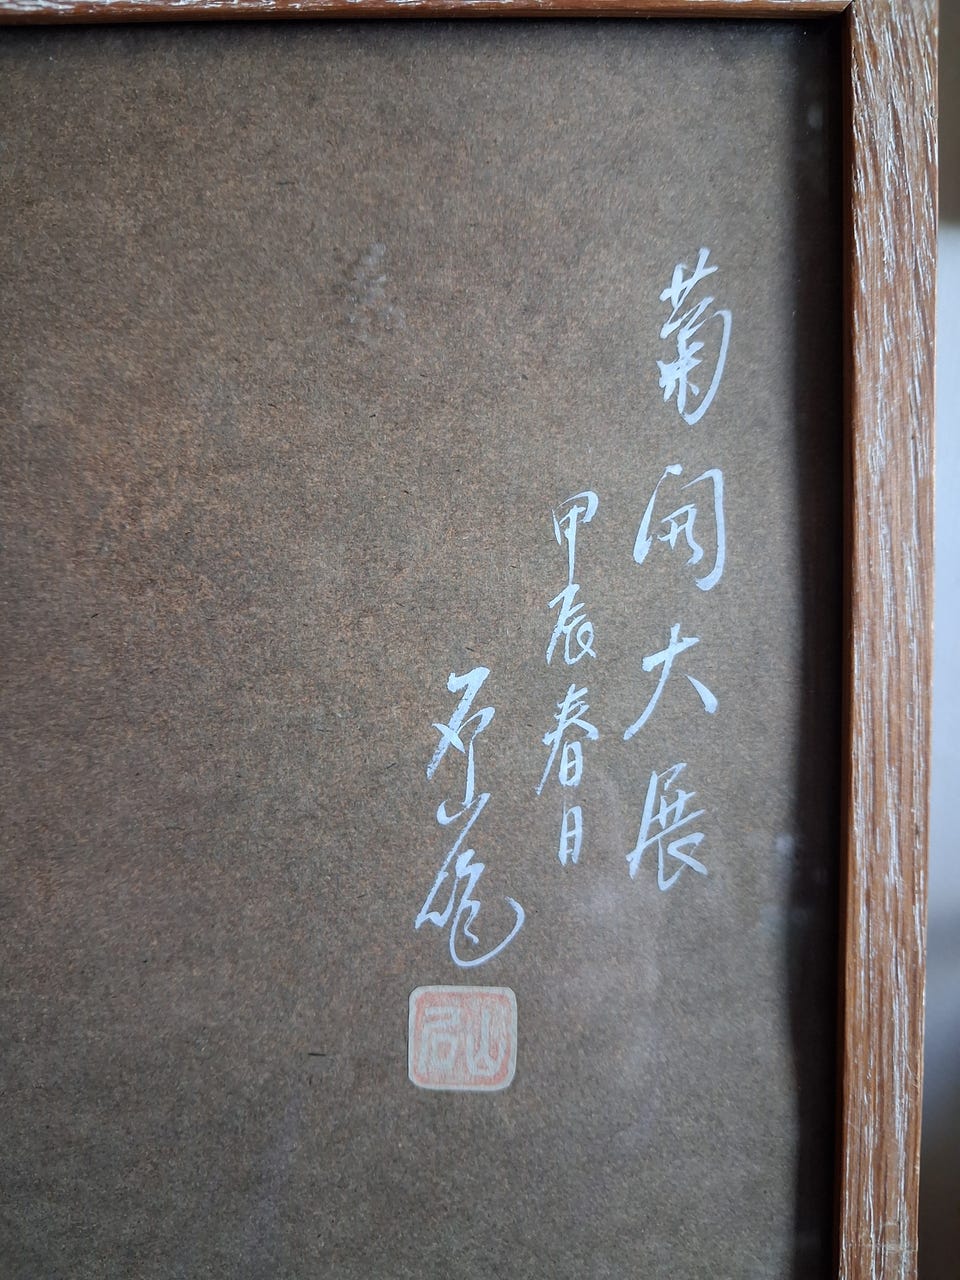 菊開大展
甲辰春日
山